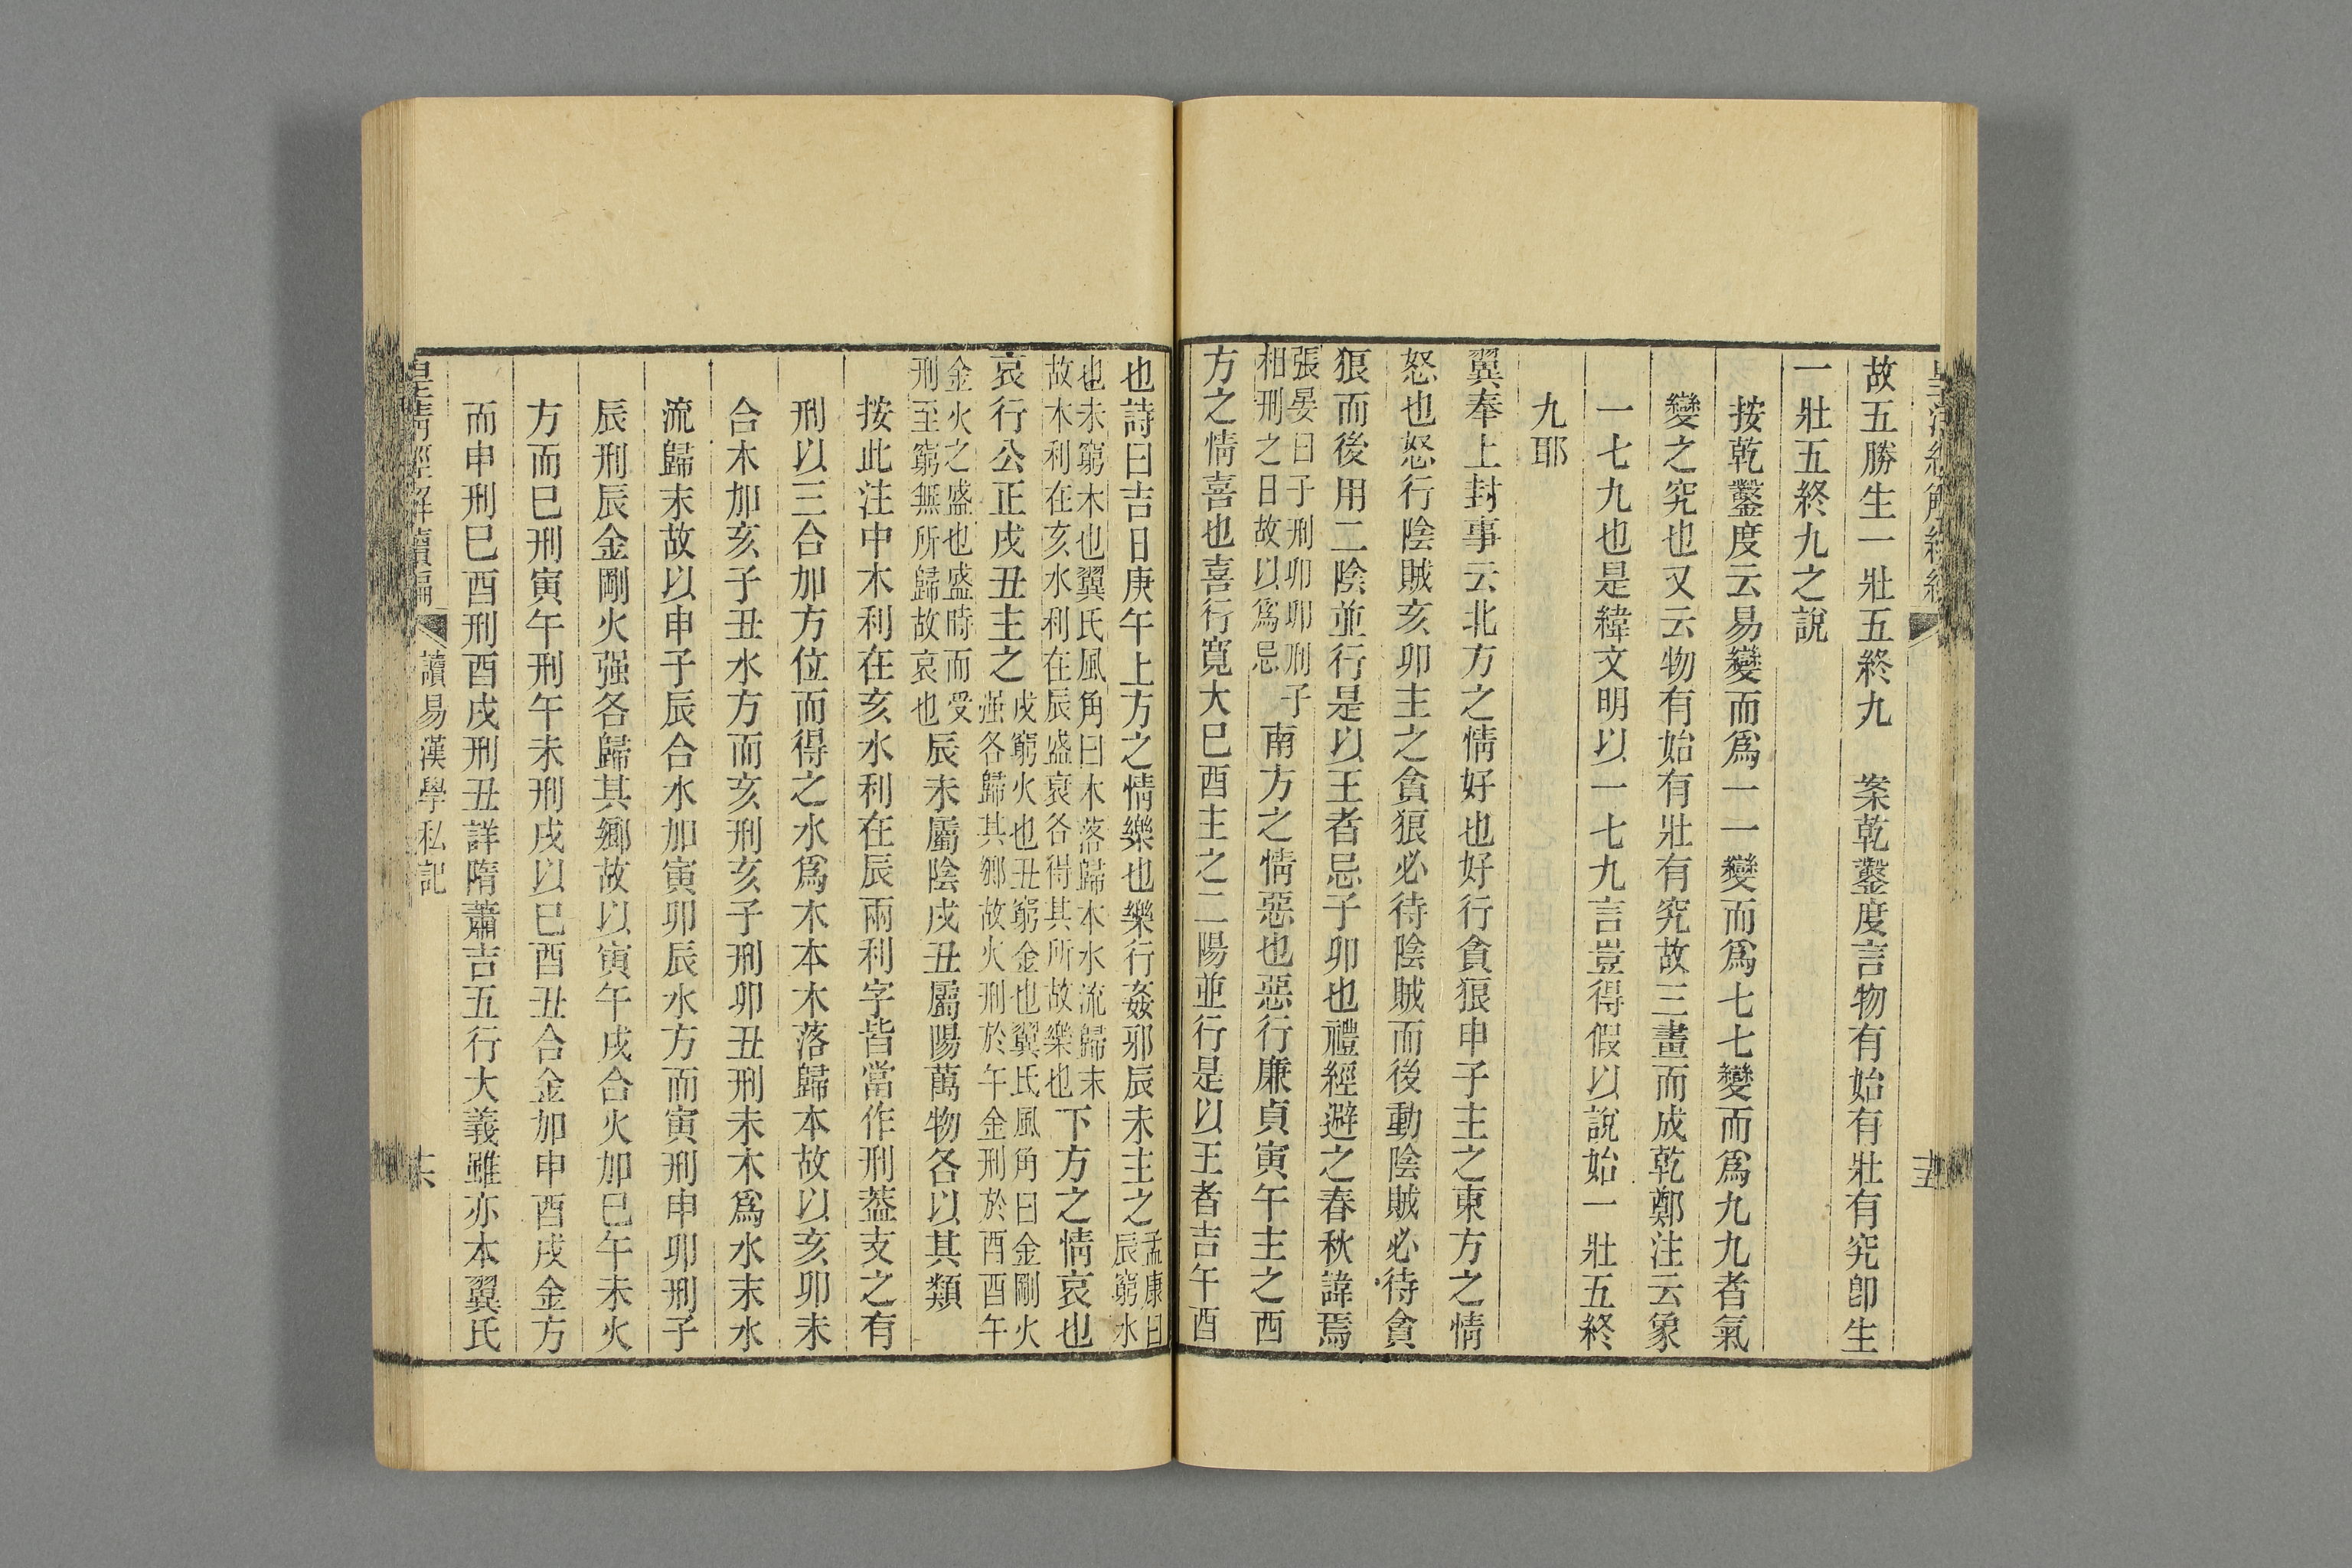 故五勝生一壯五終九　案乾鑿度言物有始有壯有究卽生
一壯五終九之說
按乾鑿度云易變而爲一一變而爲七七變而爲九九者氣
變之究也又云物有始有壯有究故三畫而成乾鄭注云象
一七九也是緯文明以一七九言豈得假以說始一壯五終
九耶
翼奉上封事云北方之情好也好行貪狼申子主之東方之情
怒也怒行陰賊亥卯主之貪狼必待陰賊而後動陰賊必待貪
狼而後用二陰並行是以王者忌子卯也禮經避之春秋諱焉
張晏曰子刑卯卯刑子
相刑之日故以爲忌
南方之情惡也惡行廉貞寅午主之西
方之情喜也喜行寬大巳酉主之二陽並行是以王者吉午酉
也詩曰吉日庚午上方之情樂也樂行姦邪辰未主之
孟康曰
辰窮水
也未窮木也翼氏風角曰木落歸本水流歸末
故木利在亥水利在辰盛衰各得其所故樂也
下方之情哀也
哀行公正戌丑主之
戌窮火也丑窮金也翼氏風角曰金剛火
强各歸其鄉故火刑於午金刑於酉酉午
金火之盛也盛時而受
刑至窮無所歸故哀也
辰未屬陰戌丑屬陽萬物各以其類
按此注中木利在亥水利在辰兩利字皆當作刑葢支之有
刑以三合加方位而得之水爲木本木落歸本故以亥卯未
合木加亥子丑水方而亥刑亥子刑卯丑刑未木爲水末水
流歸末故以申子辰合水加寅卯辰水方而寅刑申卯刑子
辰刑辰金剛火强各歸其鄉故以寅午戌合火加巳午未火
方而巳刑寅午刑午未刑戌以巳酉丑合金加申酉戌金方
而申刑巳酉刑酉戌刑丑詳隋蕭吉五行大義雖亦本翼氏
皇清經解續編
讀易漢學私記